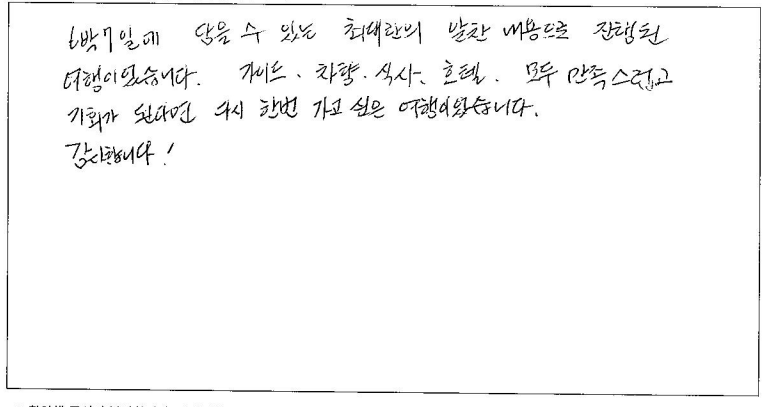 6박7일에 담을 수 있는 최대한의 알찬 내용으로 진행된
여행이었습니다. 가이드. 차량. 식사. 호텔. 모두 만족스럽고
기회가 된다면 다시 한번 가고 싶은 여행이었습니다.
감사합니다!